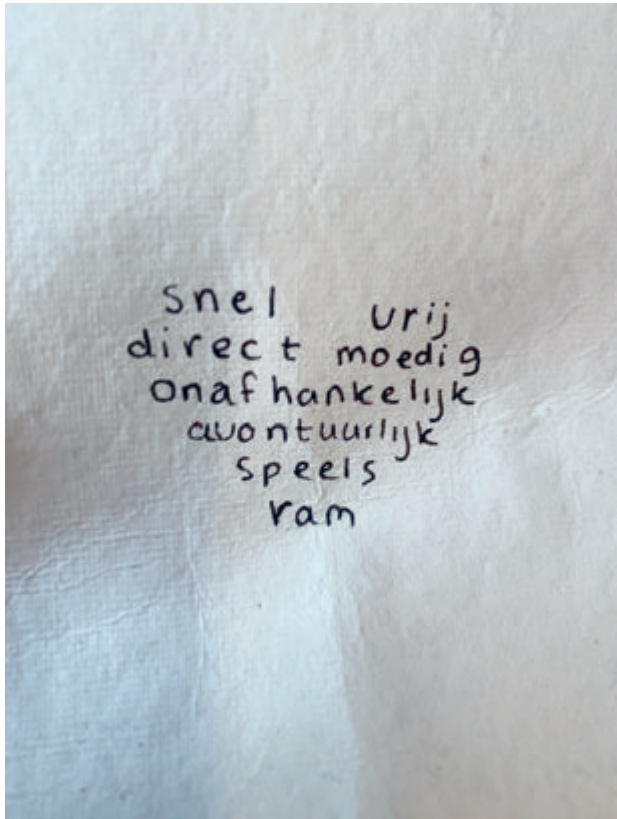 snel vrij
direct moedig
onafhankelijk
avontuurlijk
speels
ram